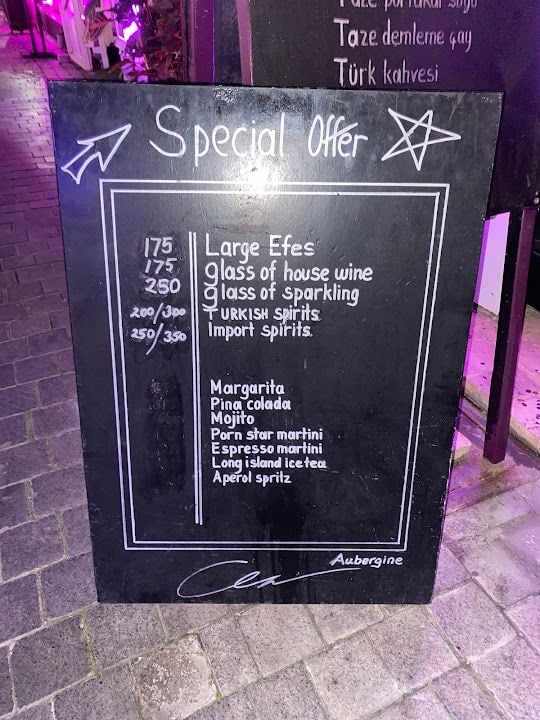 Taze portakal suyu
Taze demleme çay
Türk kahvesi
Special Offer
175 Large Efes
175 glass of house wine
250 glass of sparkling
200/300 Turkish spirits
250/350 Import spirits
Margarita
Pina colada
Mojito
Porn star martini
Espresso martini
Long island ice tea
Aperol spritz
Aubergine